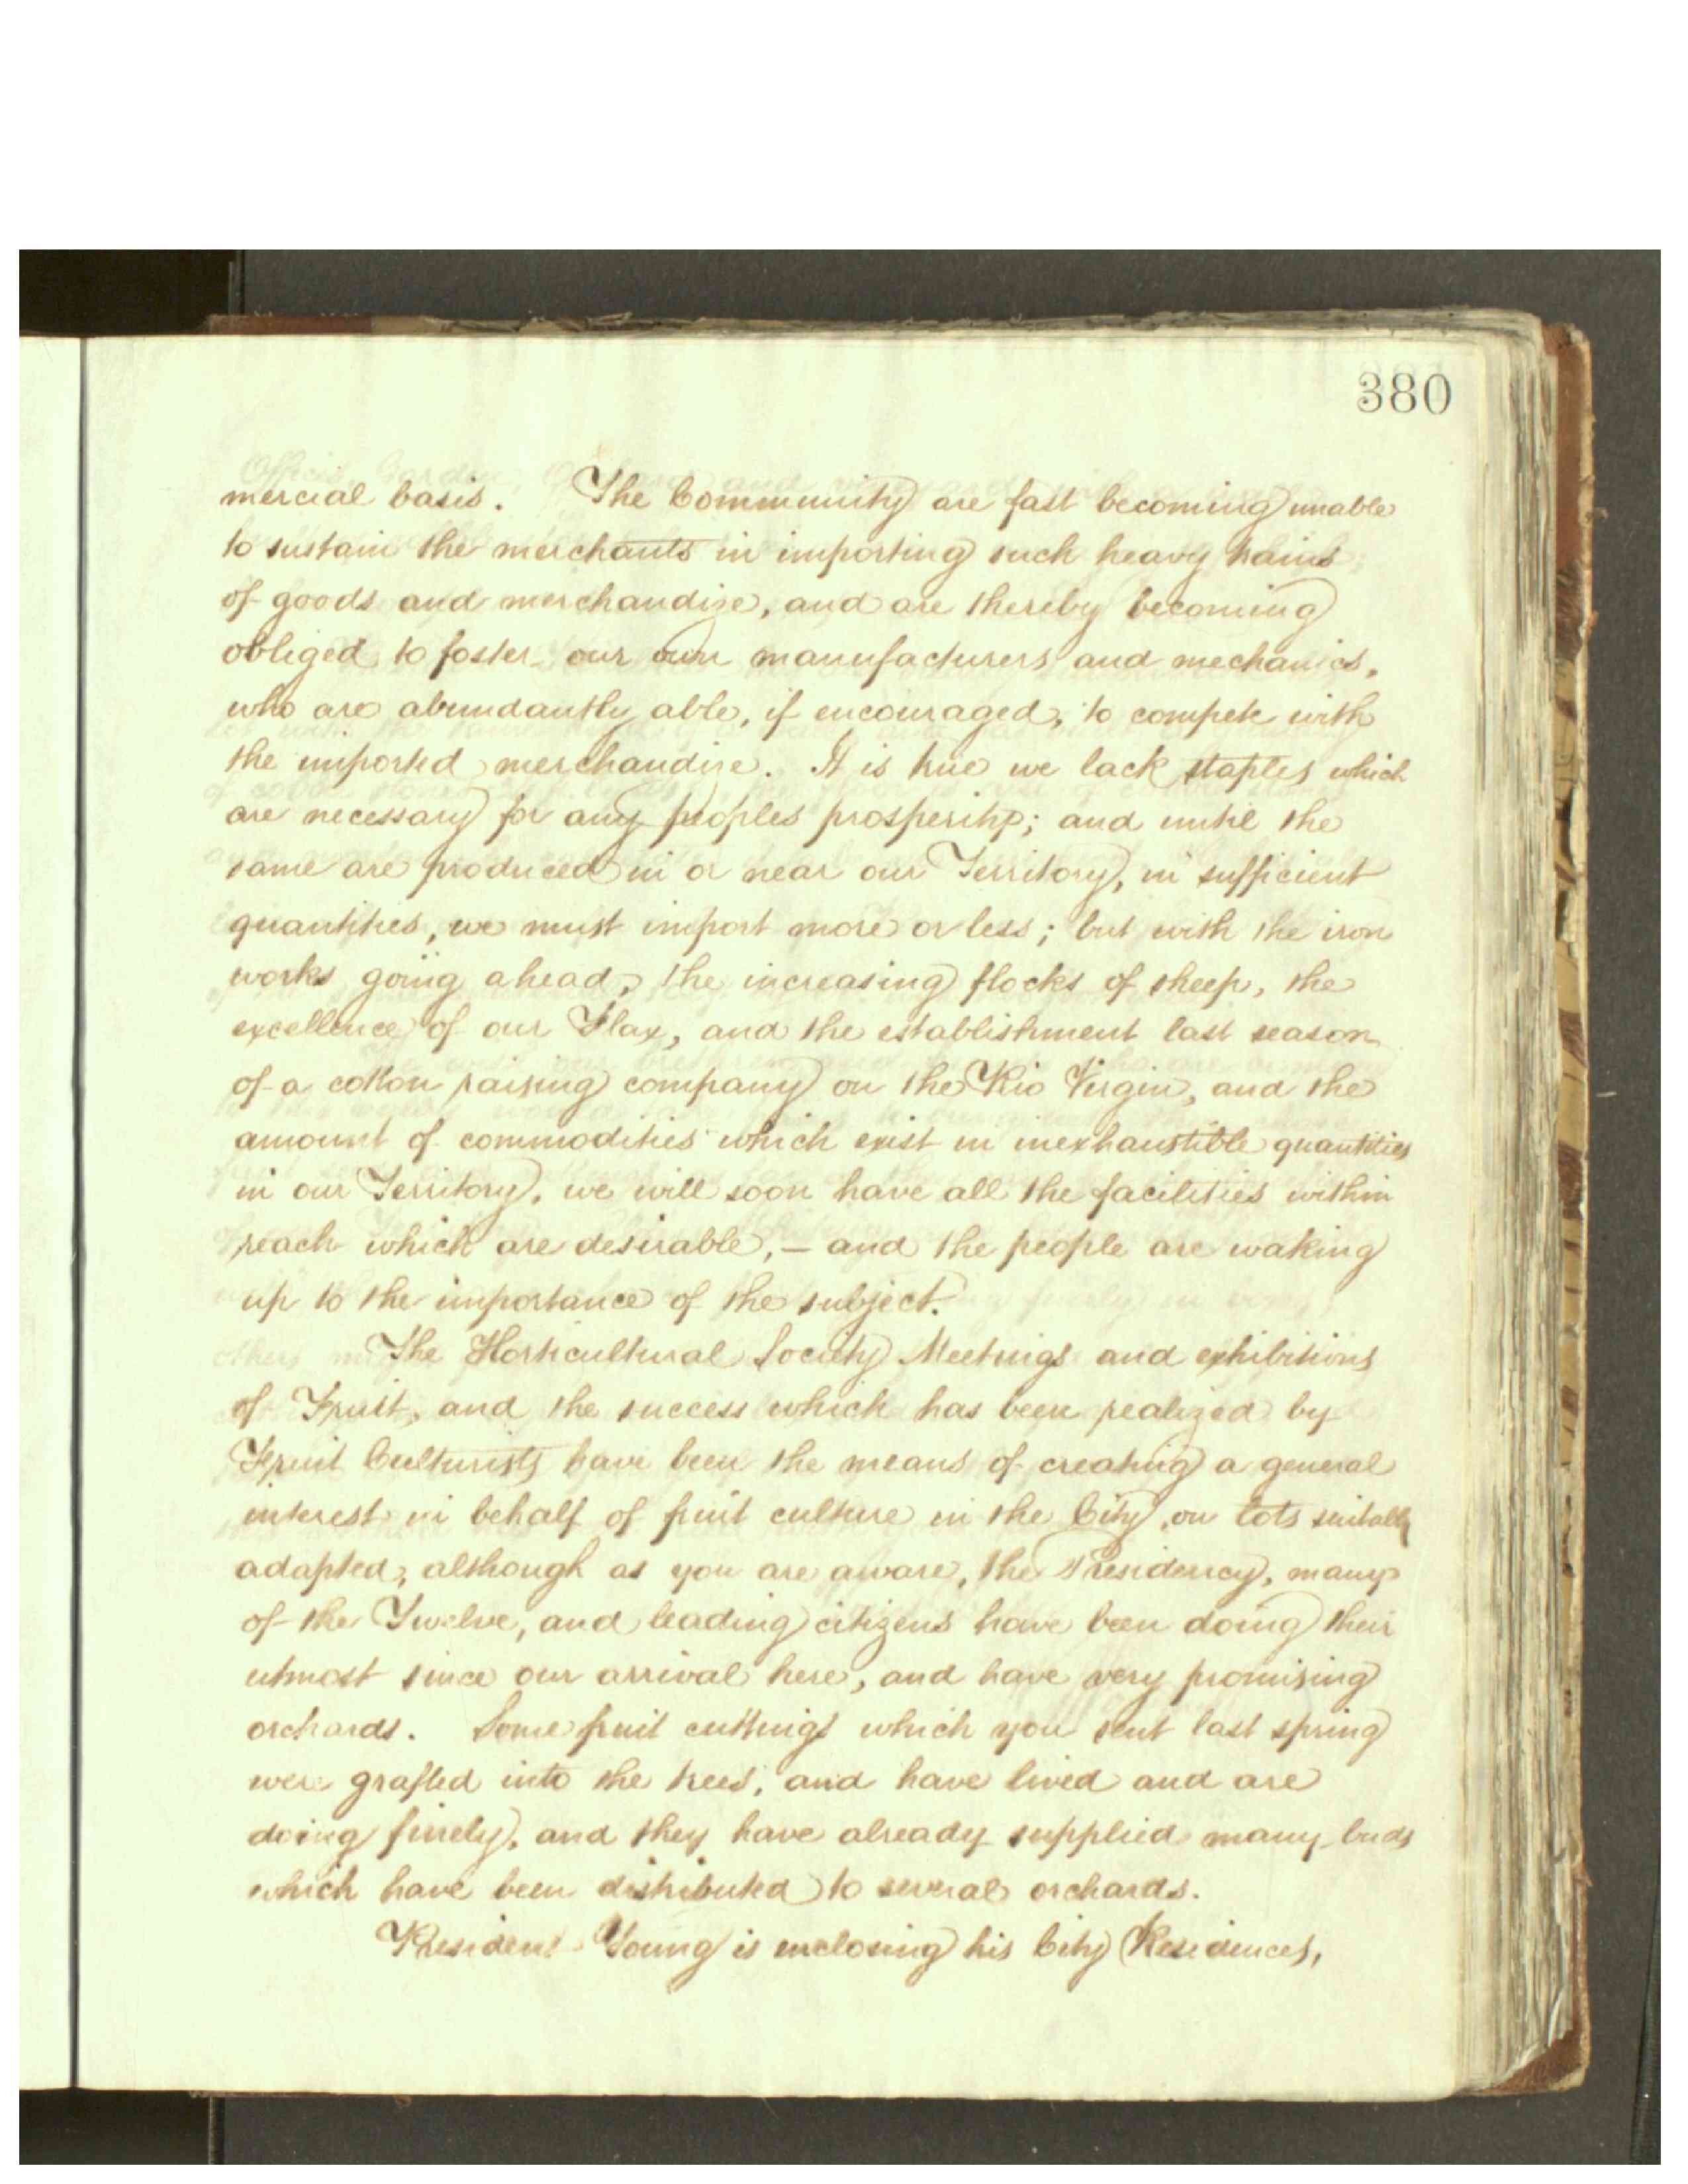 380
mercial basis. The Community are fast becoming unable
to sustain the merchants in importing such heavy trains
of goods and merchandize, and are thereby becoming
obliged to foster our own manufacturers and mechanics,
who are abundantly able, if encouraged, to compete with
the imported merchandize. It is true we lack staples which
are necessary for any peoples prosperity; and until the
same are produced in or near our Territory, in sufficient
quantities, we must import more or less; but with the iron
works going ahead, the increasing flocks of sheep, the
excellence of our Flax, and the establishment last season
of a cotton raising company on the Rio Virgin, and the
amount of commodities which exist in inexhaustible quantities
in our Territory, we will soon have all the facilities within
reach which are desirable, — and the people are waking
up to the importance of the subject.
The Horticultural Society Meetings and exhibitions
of Fruit, and the success which has been realized by
Fruit Culturists have been the means of creating a general
interest in behalf of fruit culture in the City, on lots suitably
adapted, although as you are aware, the Presidency, many
of the Twelve, and leading citizens have been doing their
utmost since our arrival here, and have very promising
orchards. Some fruit cuttings which you sent last spring
were grafted into the trees, and have lived and are
doing finely, and they have already supplied many buds
which have been distributed to several orchards.
President Young is enclosing his City Residences,